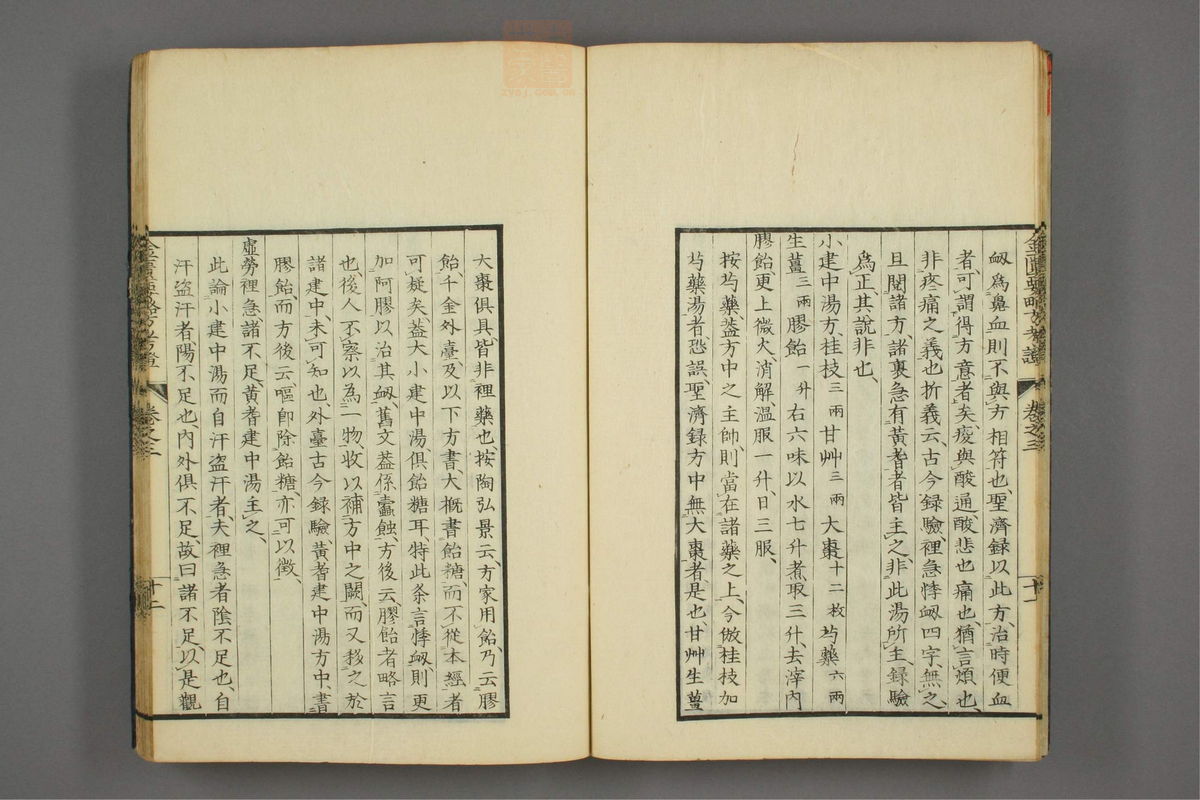 衂爲鼻血則不與方相符也聖濟録以此方治時便血
者可謂得方意者矣痠與酸通酸悲也痛也猶言煩也
非疼痛之義也折義云古今録驗裡急悸衂四字無之
且閲諸方諸裹急有黃耆者皆主之非此湯所主録驗
爲正其說非也
小建中湯方桂枝三兩甘艸三兩大棗十二枚芍藥六兩
生薑三兩膠飴一升右六味以水七升煮取三升去滓內
膠飴更上微火消解温服一升日三服
按芍藥葢方中之主帥則當在諸藥之上今倣桂枝加
芍藥湯者恐誤聖濟録方中無大棗者是也甘艸生薑
金匱要略方考證
卷之三
十一
大棗俱具皆非裡藥也按陶弘景云方家用飴乃云膠
飴千金外臺及以下方書大概書飴糖而不從本經者
可疑矣葢大小建中湯俱飴糖耳特此条言悸衂則更
加阿膠以治其衂舊文葢係蠹蝕方後云膠飴者略言
也後人不察以為一物收以補方中之闕而又移之於
諸建中未可知也外臺古今録驗黃耆建中湯方中書
膠飴而方後云嘔卽除飴糖亦可以徵
虛勞裡急諸不足黃耆建中湯主之
此論小建中湯而自汗盜汗者夫裡急者陰不足也自
汗盜汗者陽不足也內外俱不足故曰諸不足以是觀
卷之三
十二